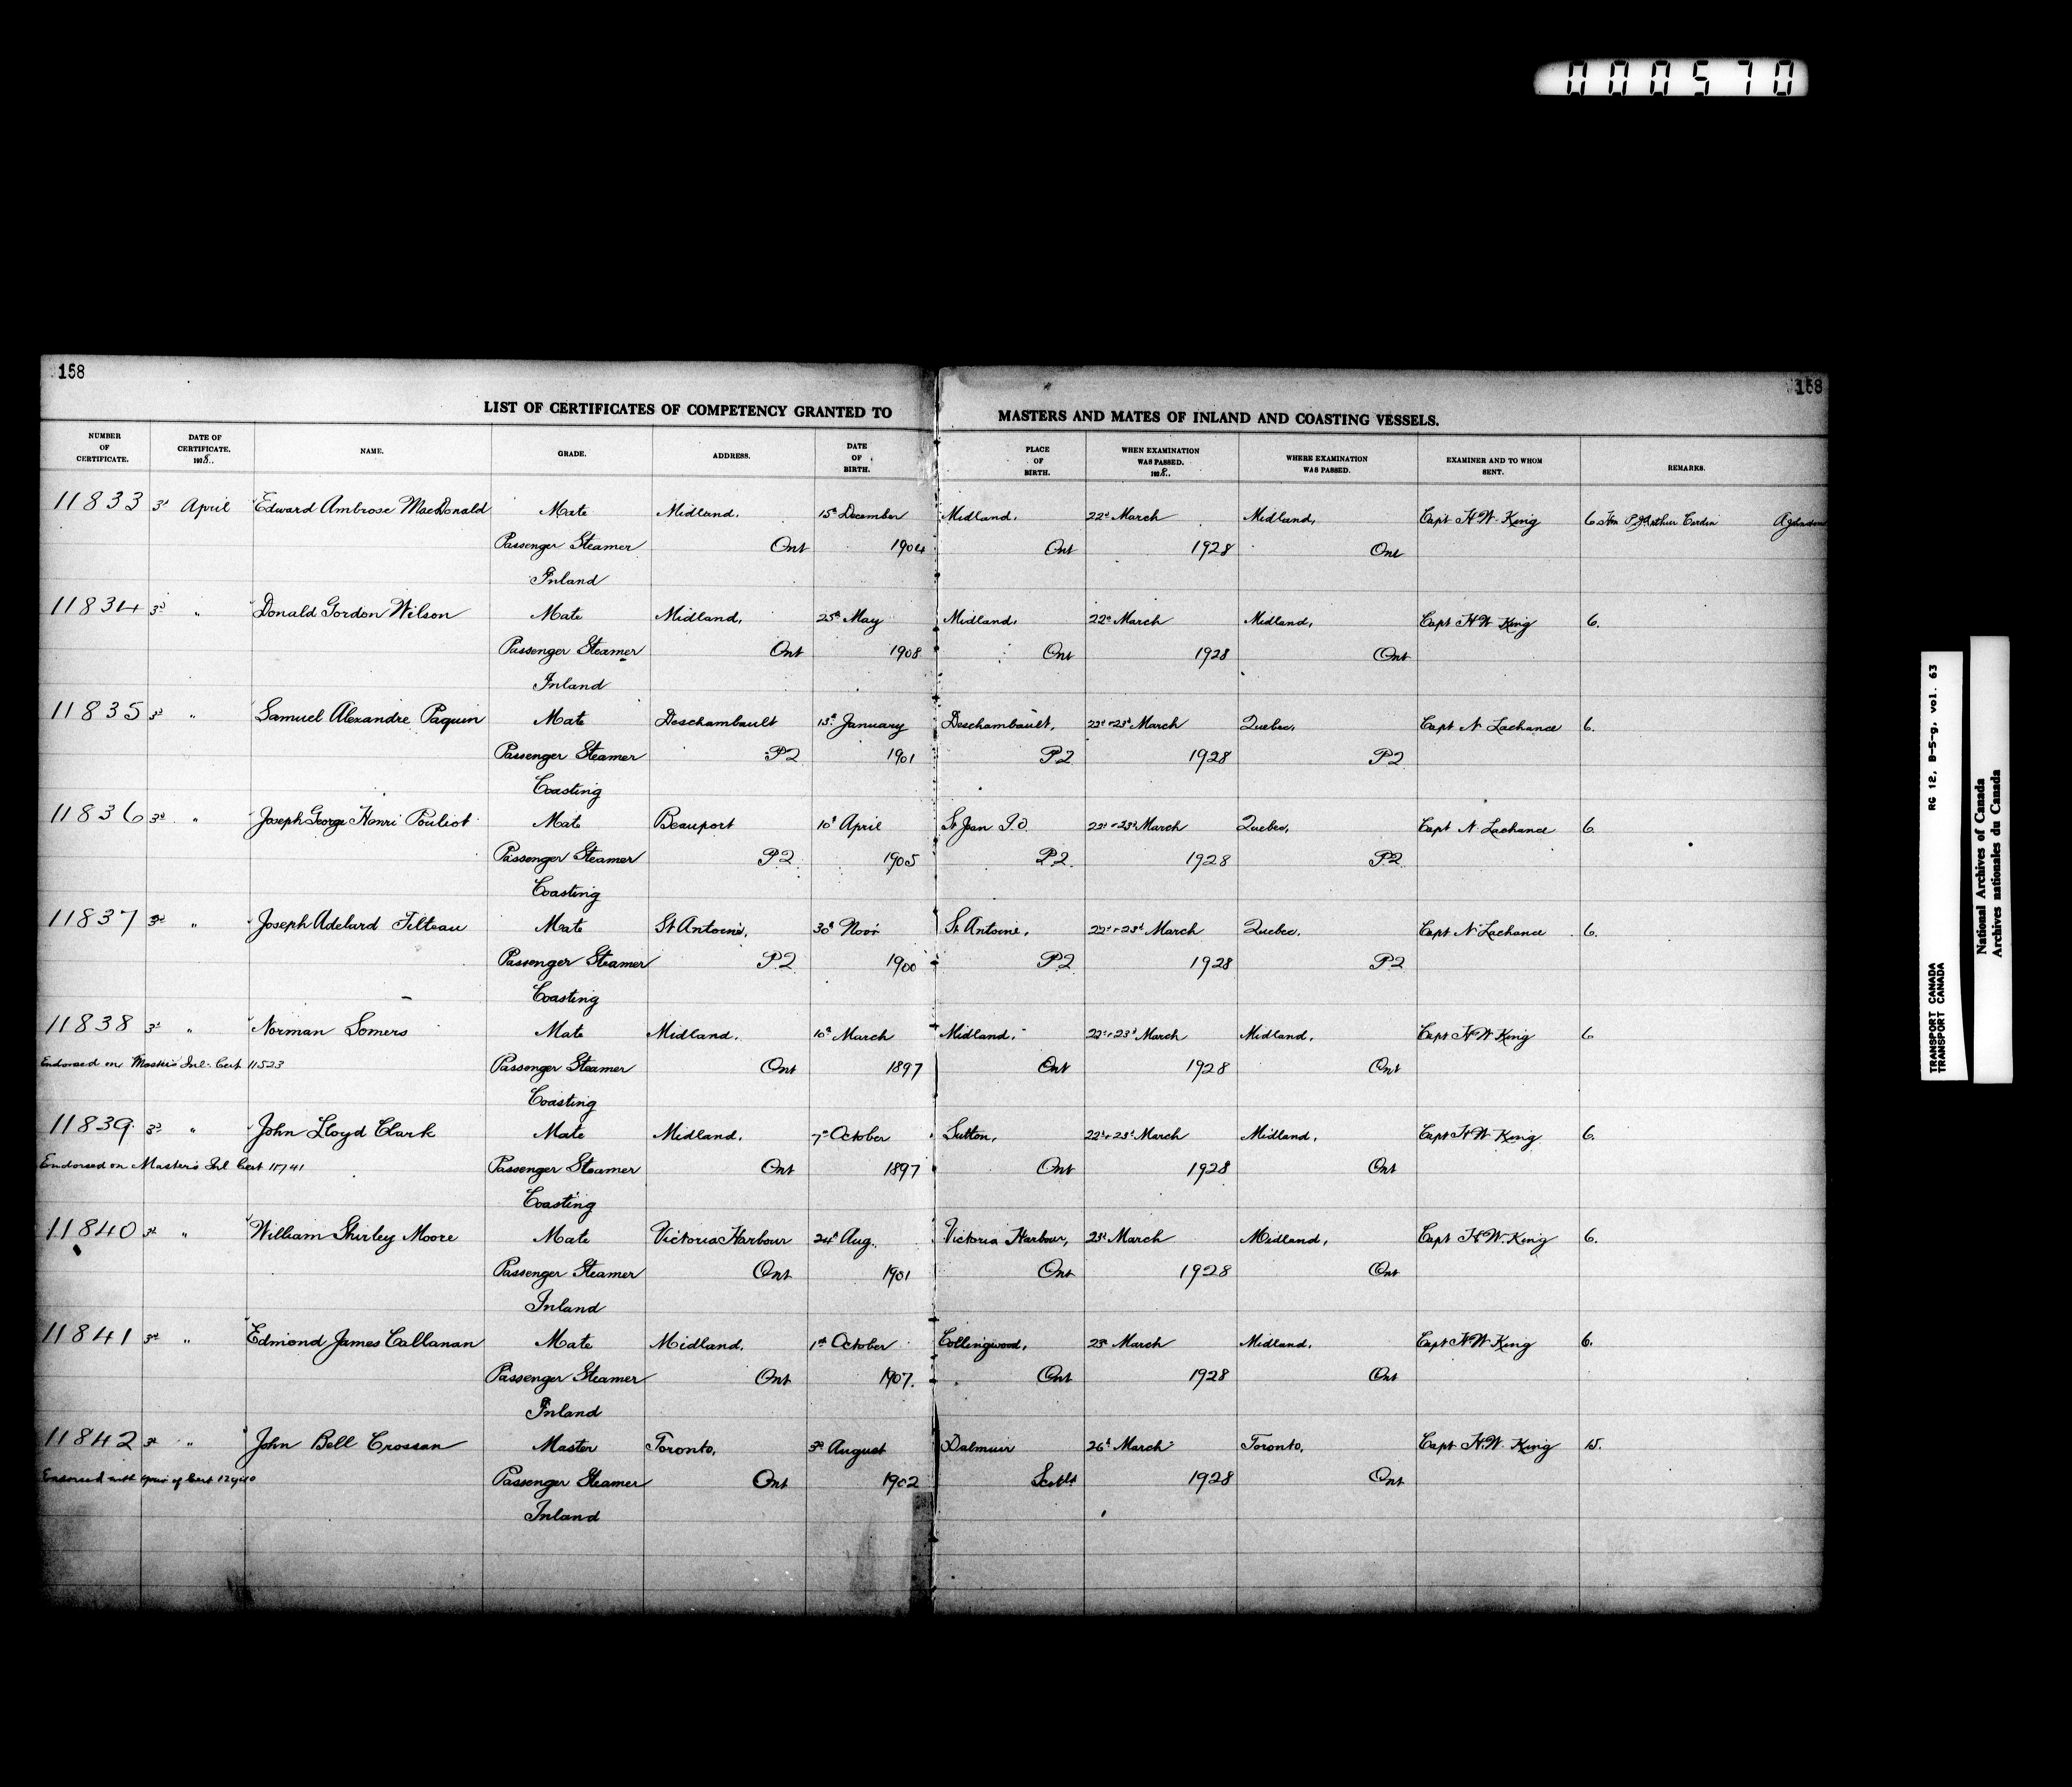 000570
158
158
LIST OF CERTIFICATES OF COMPETENCY GRANTED TO MASTERS AND MATES OF INLAND AND COASTING VESSELS.
NUMBER OF CERTIFICATE. DATE OF CERTIFICATE. 1928.. NAME. GRADE. ADDRESS. DATE OF BIRTH. PLACE OF BIRTH. WHEN EXAMINATION WAS PASSED. 1928.. WHERE EXAMINATION WAS PASSED. EXAMINER AND TO WHOM SENT. REMARKS.
11833 3d April Edward Ambrose MacDonald Mate Midland, 15th December Midland, 22d March Midland, Capt H.W. King 6 Hon P.J. Arthur Cardin A Johnston
Passenger Steamer Ont 1904 Ont 1928 Ont
Inland
11834 3d " Donald Gordon Wilson Mate Midland, 25th May Midland, 22d March Midland, Capt H W King 6.
Passenger Steamer Ont 1908 Ont 1928 Ont
Inland
11835 3d " Samuel Alexandre Paquin Mate Deschambault 13th January Deschambault, 22d & 23d March Quebec, Capt N Lachance 6.
Passenger Steamer P2 1901 P2 1928 P2
Coasting
11836 3d " Joseph George Henri Pouliot Mate Beauport 10th April St Jean I.O. 22d & 23d March Quebec, Capt N. Lachance 6.
Passenger Steamer P2 1905 P2. 1928 P2
Coasting
11837 3d " Joseph Adelard Filteau Mate St Antoine, 30th Novr St Antoine, 22d & 23d March Quebec, Capt N Lachance 6.
Passenger Steamer P2 1900 P2 1928 P2
Coasting
11838 3d " Norman Somers Mate Midland, 10th March Midland, 22d & 23d March Midland, Capt H W King 6
Endorsed on Master's Inl. Cert 11523 Passenger Steamer Ont 1897 Ont 1928 Ont
Coasting
11839 3d " John Lloyd Clark Mate Midland, 7th October Sutton, 22d & 23d March Midland, Capt H W King 6.
Endorsed on Master's Inl Cert 11741 Passenger Steamer Ont 1897 Ont 1928 Ont
Coasting
11840 3d " William Shirley Moore Mate Victoria Harbour 24th Aug. Victoria Harbour, 23d March Midland, Capt H.W. King 6.
Passenger Steamer Ont 1901 Ont 1928 Ont
Inland
11841 3d " Edmond James Callanan Mate Midland, 1st October Collingwood, 23d March Midland, Capt H W King 6.
Passenger Steamer Ont 1907. Ont 1928 Ont
Inland
11842 3d " John Bell Crossan Master Toronto, 3d August Dalmuir 26th March Toronto, Capt H.W. King 15.
Cert Passenger Steamer Ont 1902 Scotld 1928 Ont
Inland
TRANSPORT CANADA RG 12, B-5-g, vol. 63
TRANSPORT CANADA
National Archives of Canada
Archives nationales du Canada